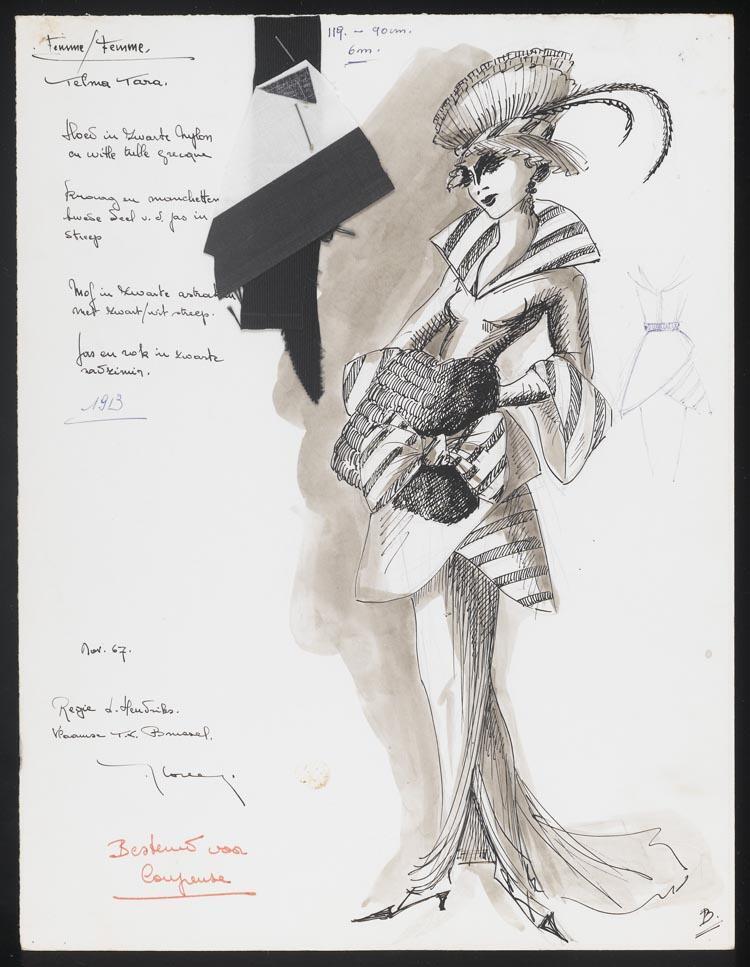 Femme/Femme.
Telma Tara.
119. - 90cm.
6m.
Hoed in zwarte Nylon
en witte tulle grecque
Kraag en manchetten
twede deel v. d. jas in
streep
Mof in zwarte astrakan
met zwart/wit streep.
Jas en rok in zwarte
radzimir.
1913
Nov. 67.
Regie d. Hendriks.
Vlaamse T.V. Brussel.
Bestemd voor
Coupeuse
B.